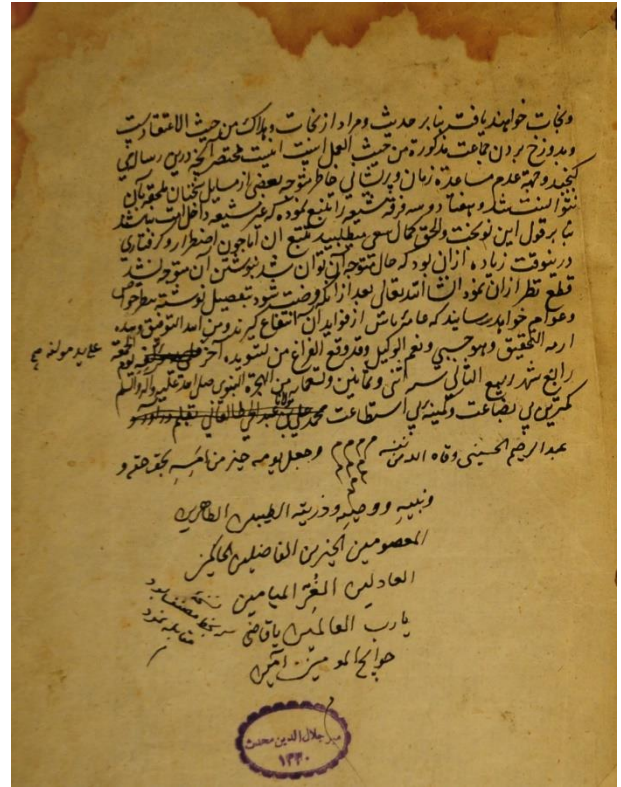 ونجات خواهند یافت بنا بر حدیث و مراد از نجات و هلاک من حیث الاعتقادست
و بدوزخ بردن جماعت مذکورة من حیث العمل است اینست مختصر آنچه درین رساله می
کنجید و جهة عدم مساعدة زمان و پریشانی خاطر متوجه بعضی از مسایل سخنان ملحقه بآن
نتوانست شد و هفتاد و سه فرقه شیعه را تتبع نموده که غیر شیعه داخل امت نباشد
بنا بر قول این نوبخت والحق کمال سعی میطلبید تتبع آن اما چون اضطرار و گرفتاری
درینوقت زیاده از آن بود که حال متوجه آن توان شد بنوشتن آن متوجه نشد
قطع نظر از آن نمود انشا الله تعالی بعد ازین که فرصت شود بتفصیل نوشته بنظر خواص
وعوام خواهد رسانید که عامه ناس از فواید آن انتفاع گیرند ومن الله التوفیق وبیده
ازمة التحقیق وهو حسبی ونعم الوکیل وقد وقع الفراغ من تسویده آخر
علی ید مولفه
رابع شهر ربیع الثانی سنه اثنی وثمانین وتسعمایه من الهجرة النبوی صلی الله علیه وآله والسلم
کمترین بی بضاعت وکمینه بی استطاعت محمد علی
عبد الرحیم الحسینی وقاه الله من وجعل یومه خیر من امسه بحق حقه و
ونبیه ووصیه وذریته الطیبین الطاهرین
المعصومین الخیرین الفاضلین الحاکمین
العادلین الغر المیامین
یا رب العالمین یا قاضی
حوایج المومنین آمین
نسخه
بخط مصنف بود
مقابله نمود
میر جلال الدین محدث
۱۳۳۰